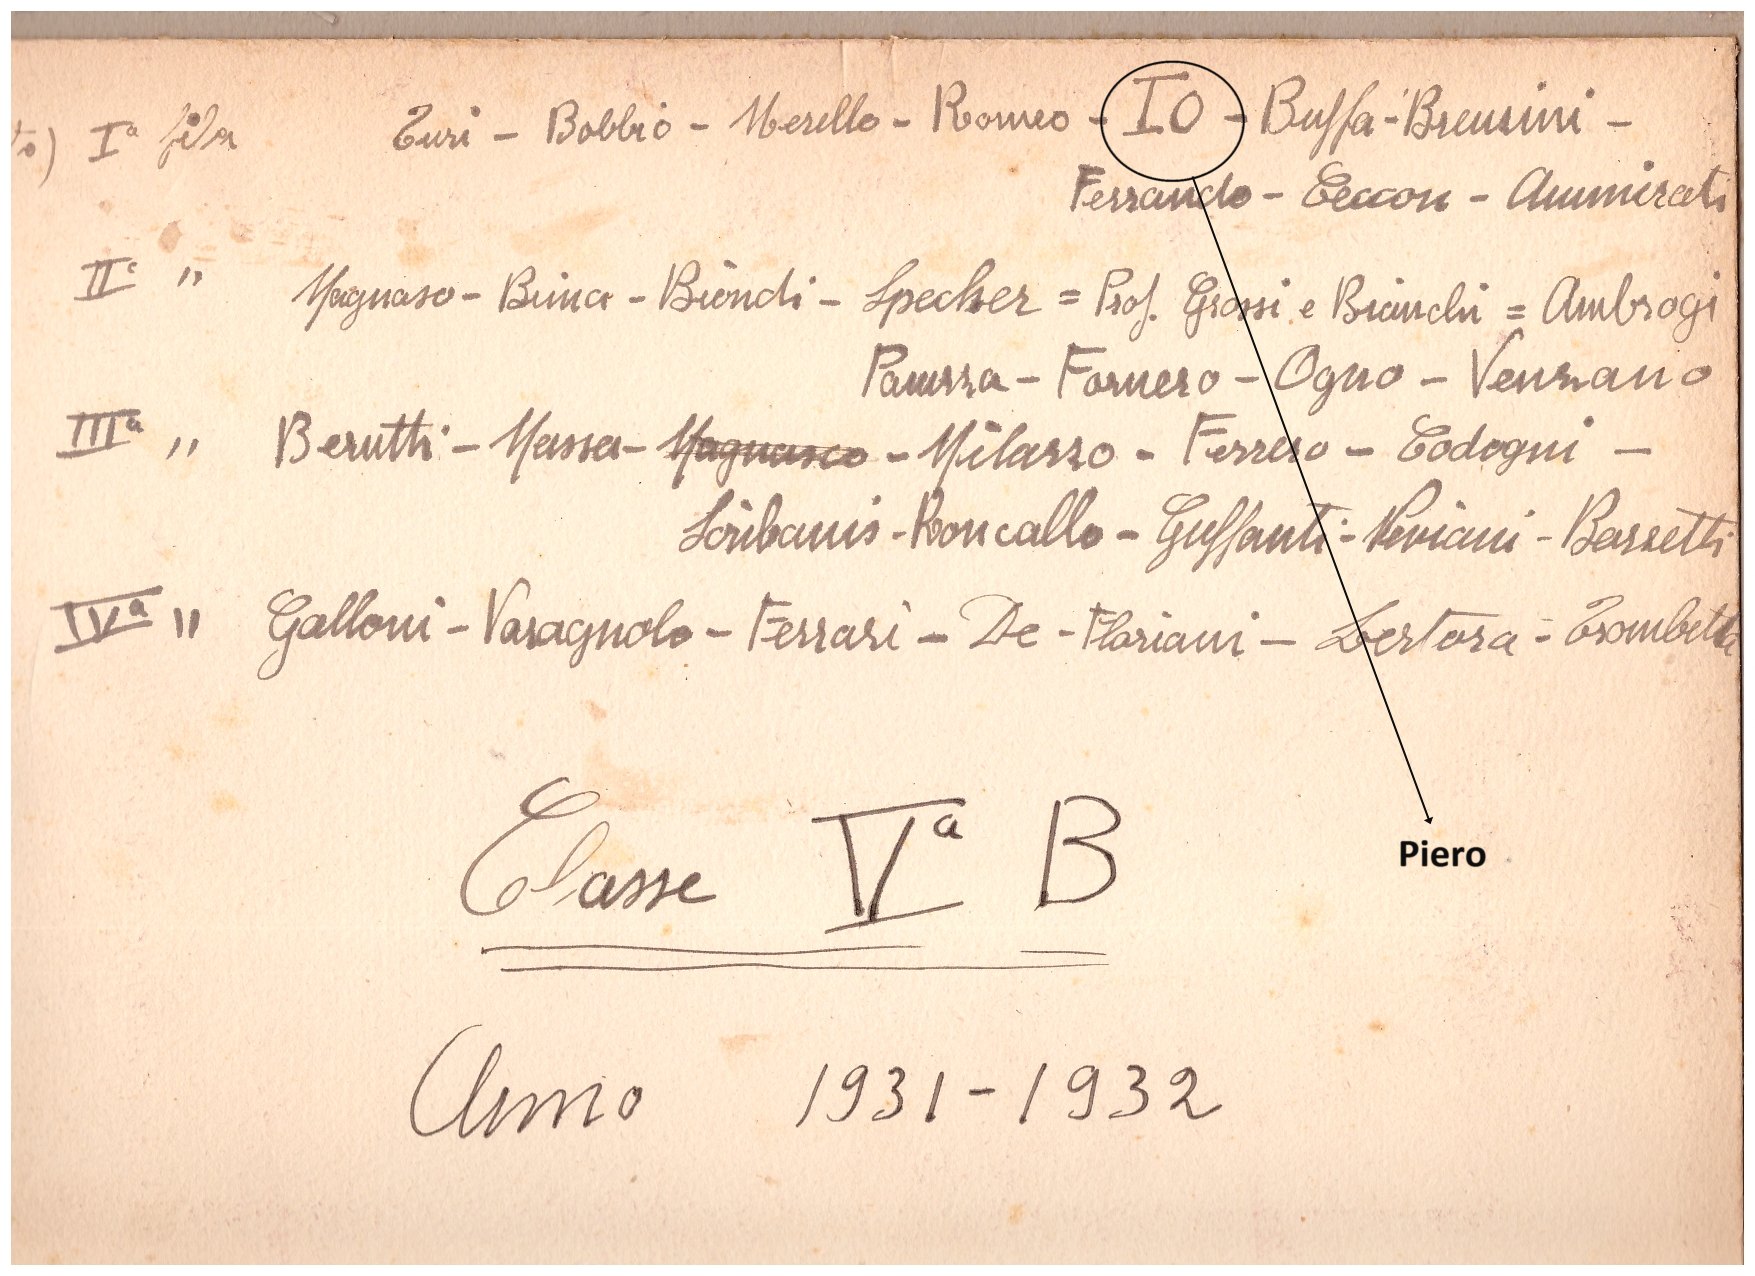 Iª fila Turi - Bobbio - Merello - Romeo - IO - Buffa - Brensini -
Ferrando - Ceccon - Ammirati
IIª " Magnaso - Bima - Biondi - Specker = Prof. Grossi e Bianchi = Ambrogi
Panizza - Fornero - Ogno - Venzano
IIIª " Berutti - Massa - Magnasco - Milazzo - Ferrero - Codogni -
Scribanis - Roncallo - Guffanti - Neviani - Bassetti
IVª " Galloni - Varagnolo - Ferrari - De - Floriani - Lertora - Trombetta
Piero
Classe Vª B
Anno 1931-1932